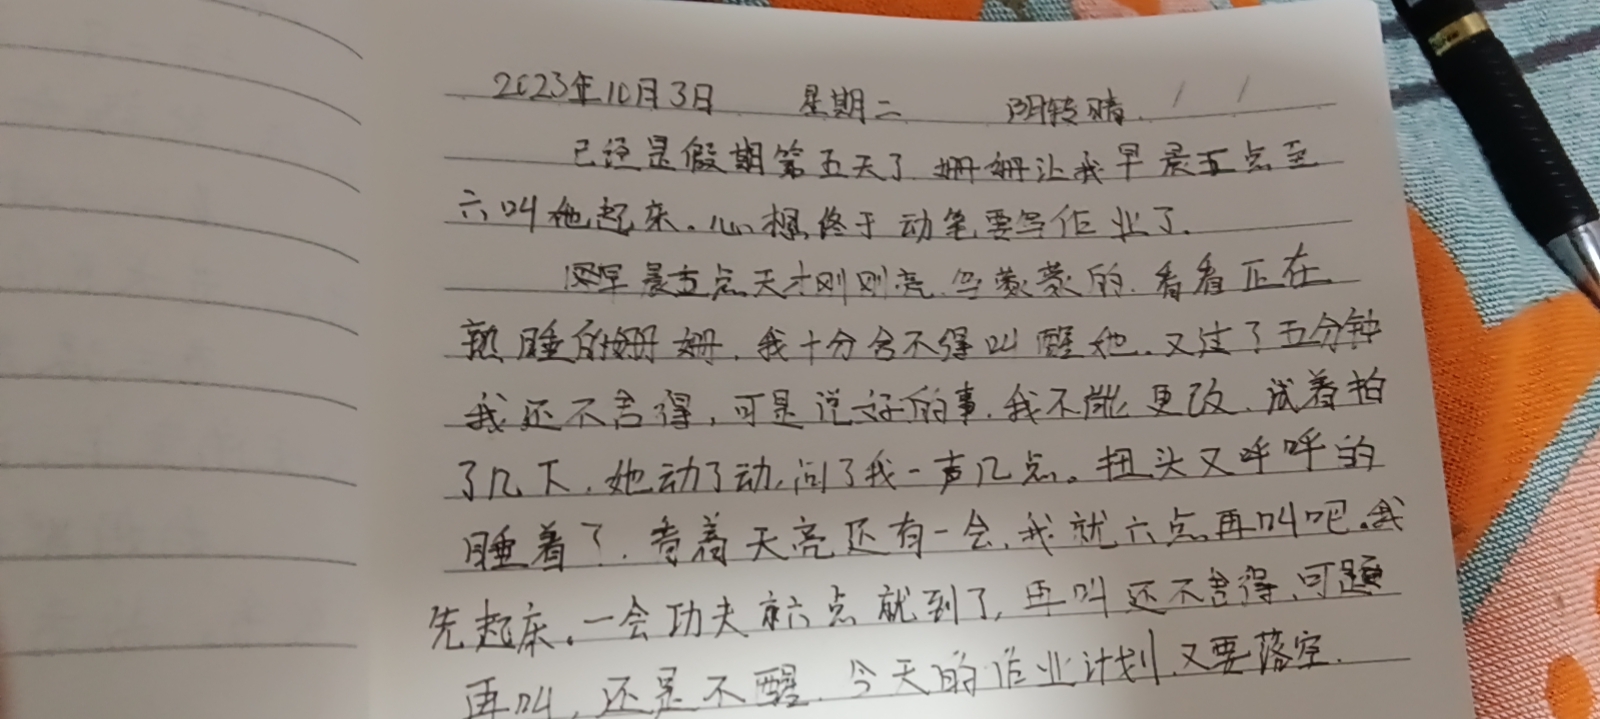 2023年10月3日 星期二 阴转晴.
已经是假期第五天了.姗姗让我早晨五点至
六叫他起床。心想终于动笔要写作业了.
早晨五点天才刚刚亮.乌蒙蒙的.看看正在
熟睡的姗姗.我十分舍不得叫醒她.又过了五分钟
我还不舍得,可是说好的事.我不能更改.试着拍
了几下.她动了动,问了我一声几点。扭头又呼呼的
睡着了.看着天亮还有一会.我就六点再叫吧.我
先起床.一会功夫六点就到了,再叫还不舍得.可是
再叫,还是不醒.今天的作业计划.又要落空.